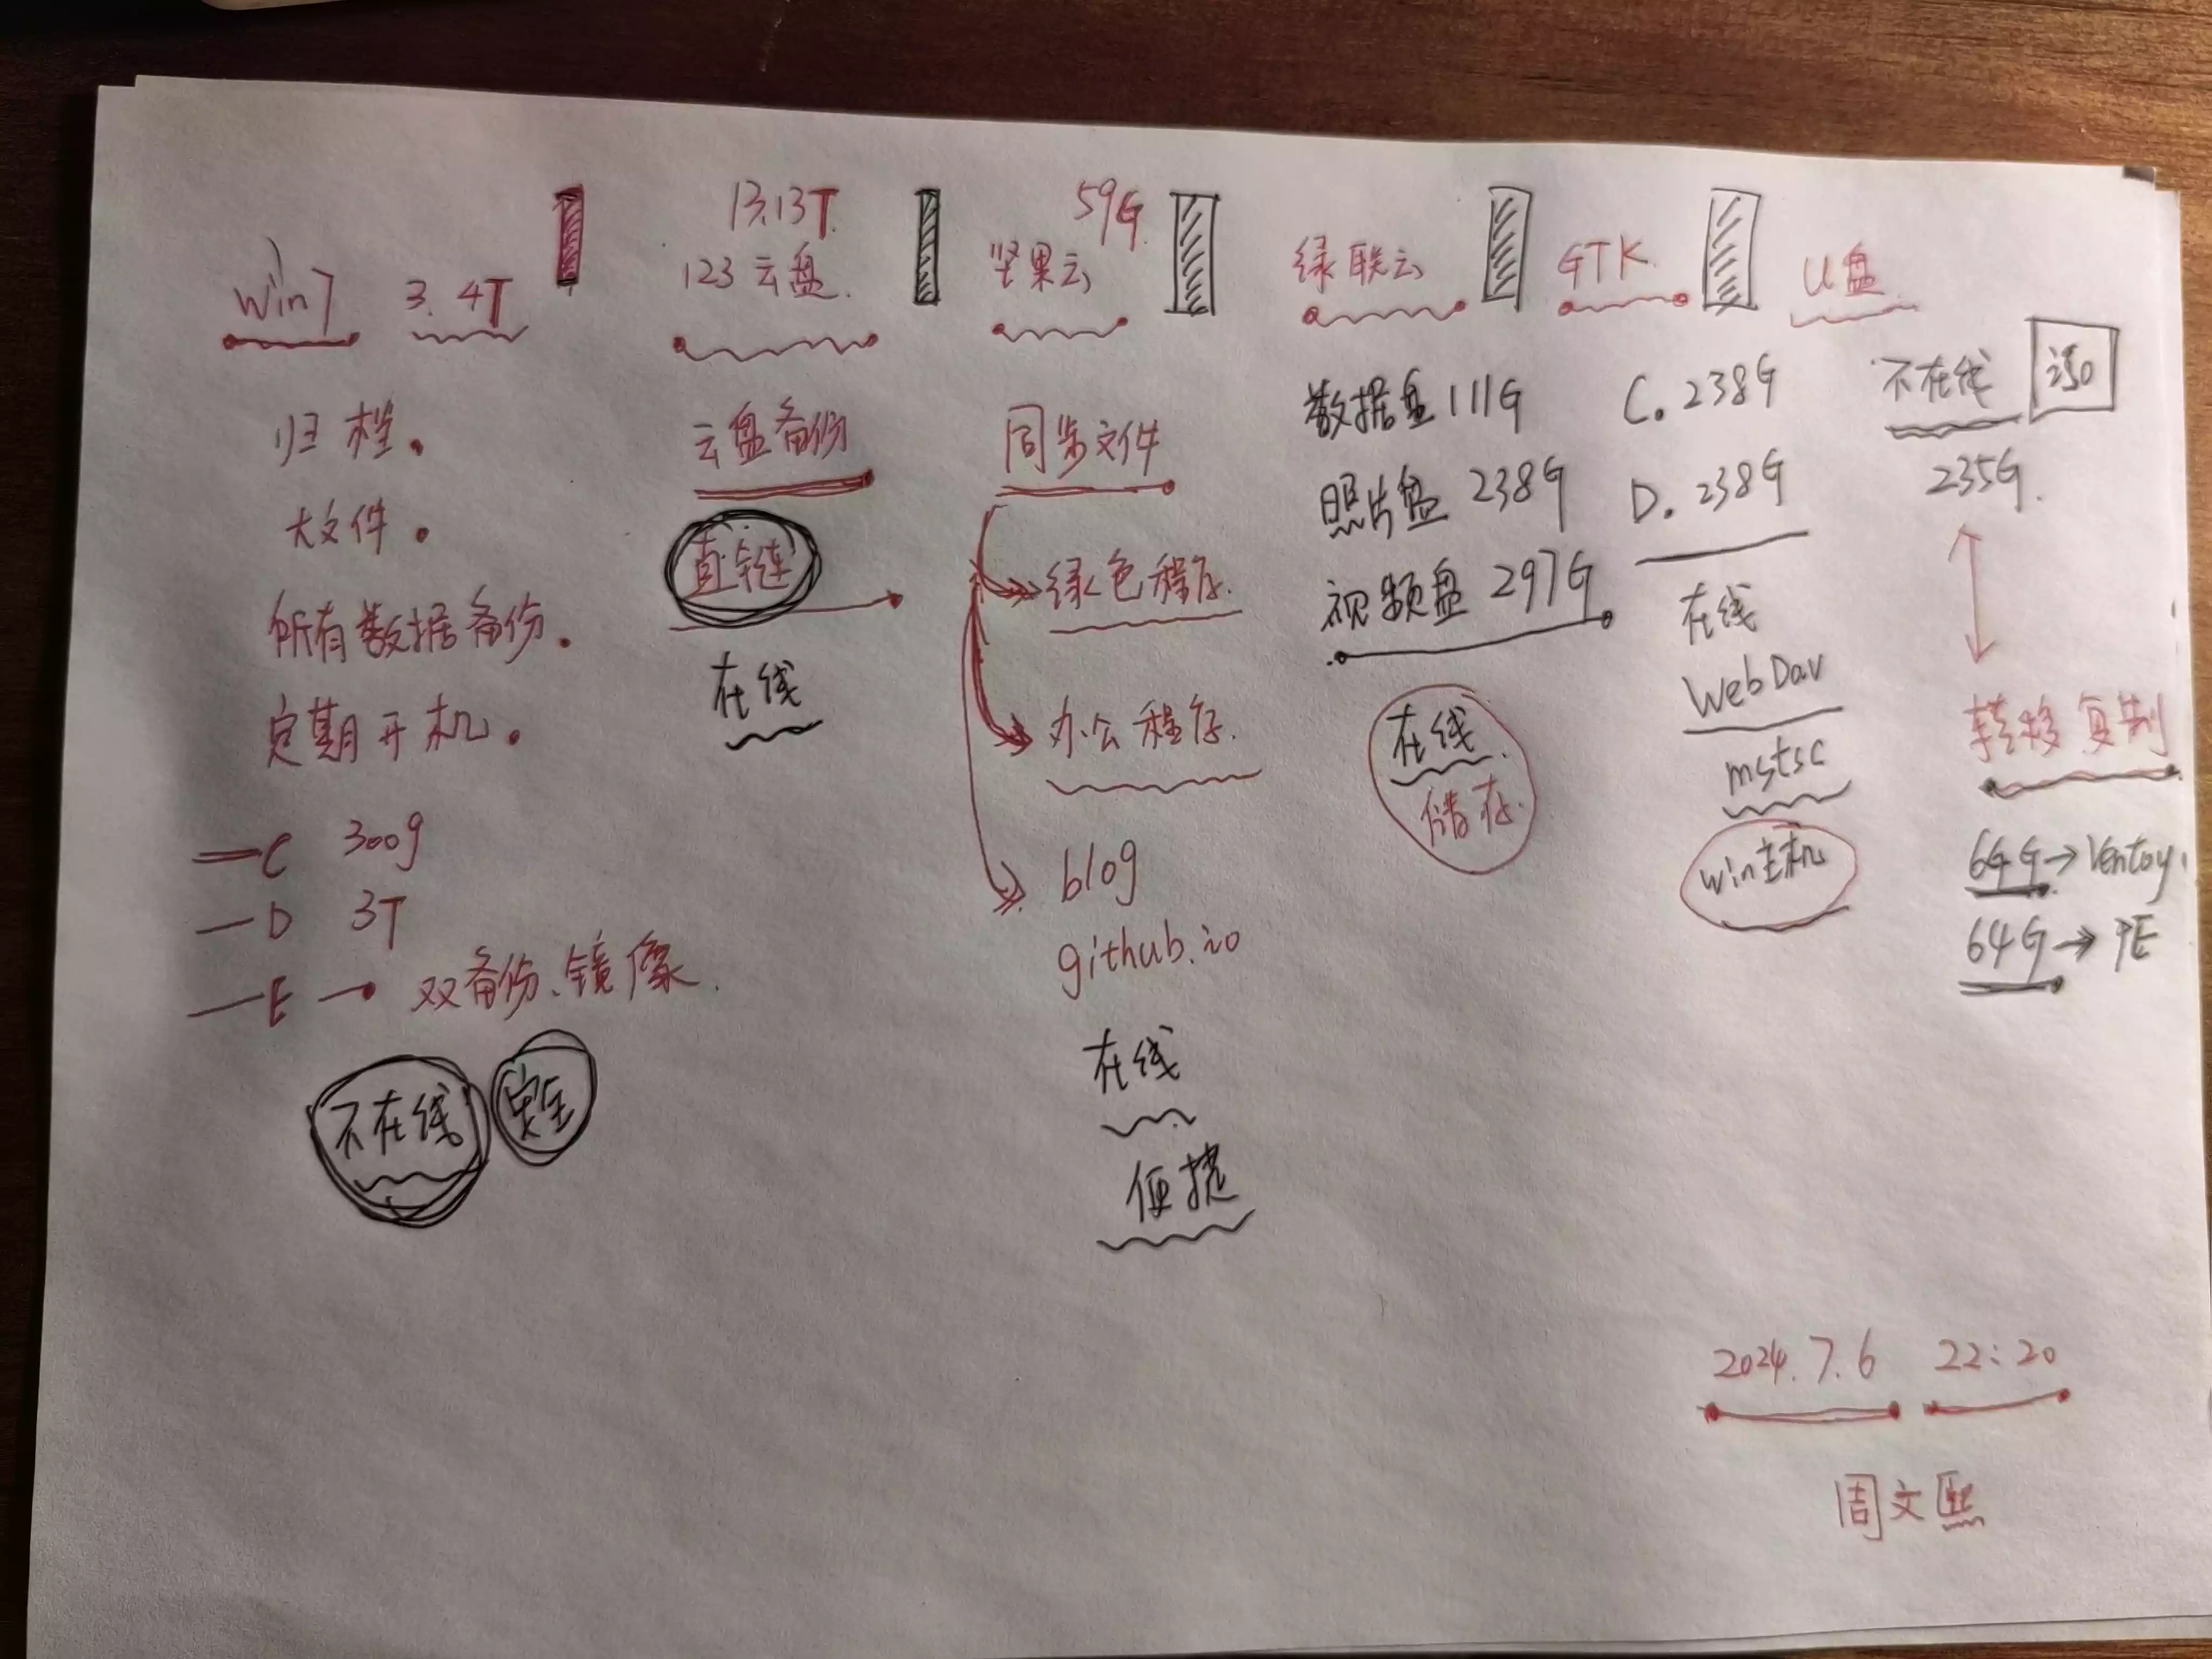 Win7 3.4T
归档。
大文件。
所有数据备份。
定期开机。
C 300g
D 3T
E → 双备份、镜像.
不在线 安全
13.13T
123云盘.
云盘备份
直链
在线
59G
坚果云
同步文件
绿色程序.
办公程序.
blog
github.io
在线
便捷
绿联云
数据盘 111G
照片盘 238G
视频盘 297G
在线
储存.
GTK.
C. 238G
D. 238G
在线
WebDav
mstsc
win主机
U盘
不在线
235G.
转移复制
64G → Ventoy
64G → PE
2024.7.6 22:20
周文熙